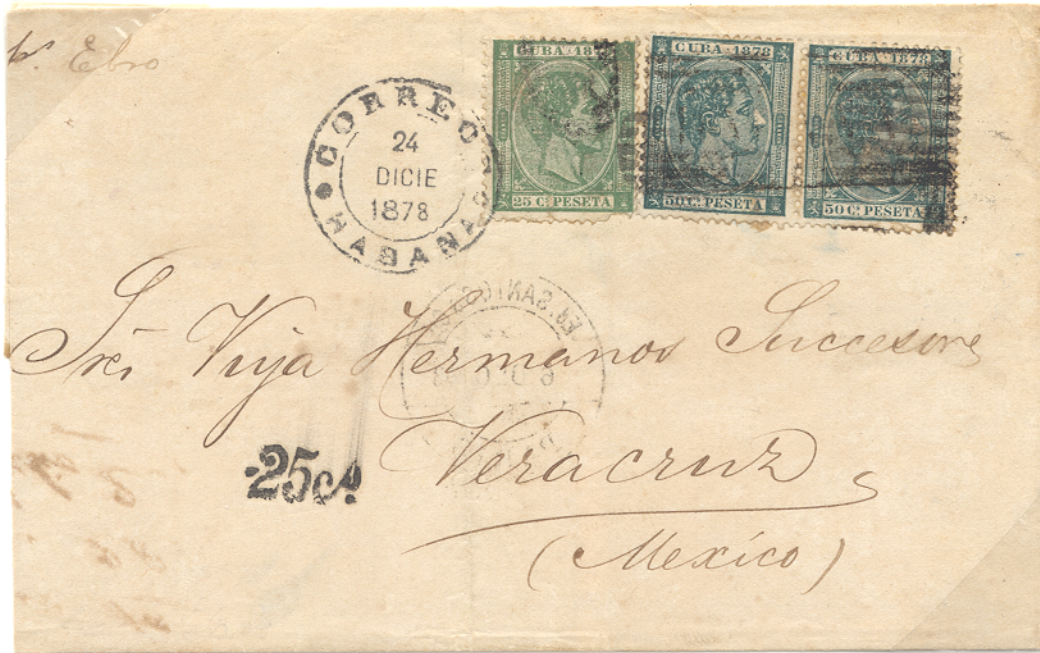 pr. Ebro
CORREOS
24
DICIE
1878
HABANA
CUBA 1878
25 Cs PESETA
CUBA 1878
50 Cs PESETA
CUBA 1878
50 Cs PESETA
Hermanos Succesores
25cs
Veracruz
(Mexico)